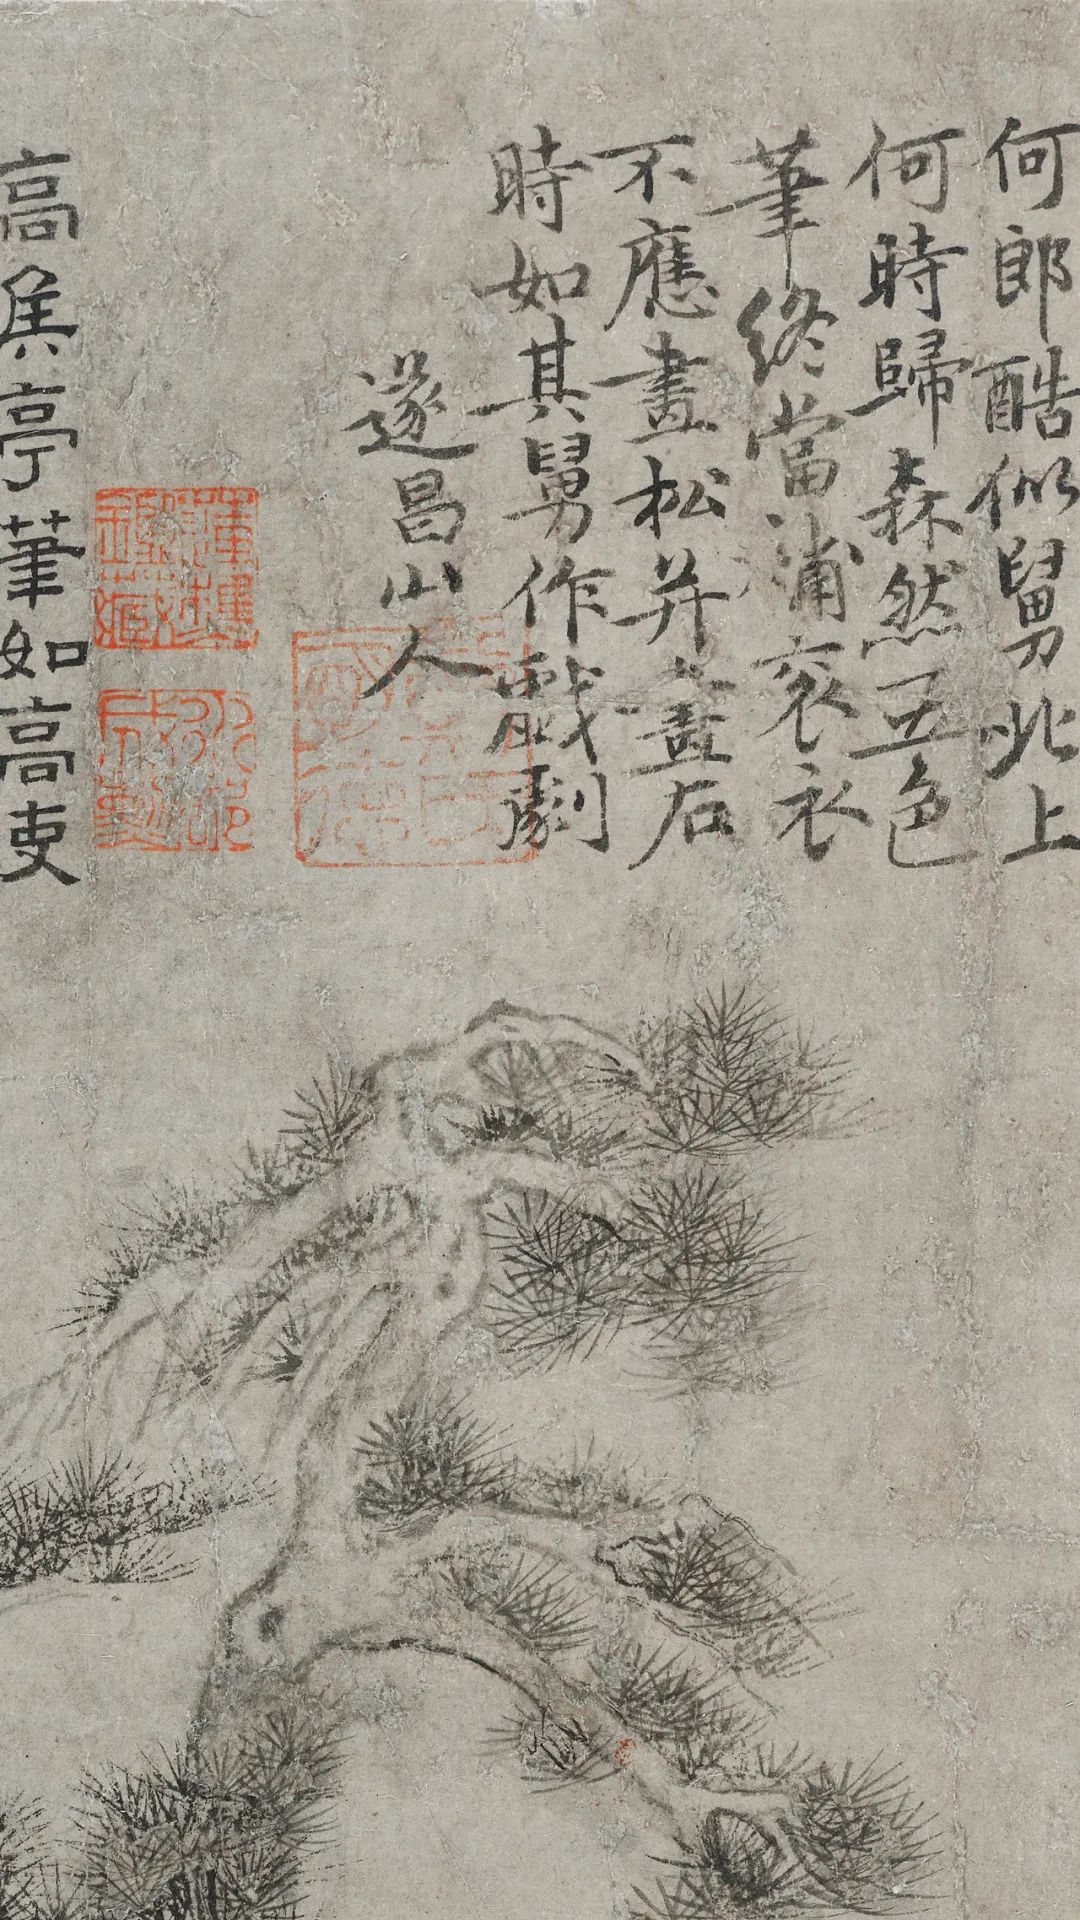 何郎酷似舅北上
何時歸森然五色
筆終當補衮衣
不應畫松并畫石
時如其舅作戲劇
遂昌山人
高侯亭筆如高吏